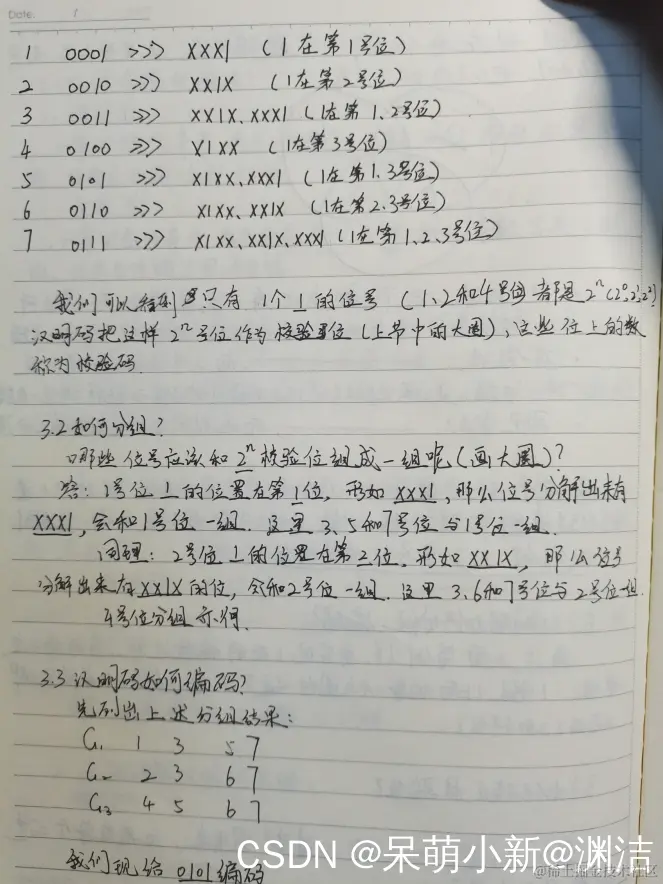 Date. /
1 0001 >>> XXX1 (1在第1号位)
2 0010 >>> XX1X (1在第2号位)
3 0011 >>> XX1X、XXX1 (1在第1、2号位)
4 0100 >>> X1XX (1在第3号位)
5 0101 >>> X1XX、XXX1 (1在第1、3号位)
6 0110 >>> X1XX、XX1X (1在第2、3号位)
7 0111 >>> X1XX、XX1X、XXX1 (1在第1、2、3号位)
我们可以看到只有1个1的位号(1、2和4号位)都是2ⁿ(2⁰,2¹,2²)
汉明码把这样2ⁿ号位作为校验位(上节中的大圆),这些位上的数
称为校验码.
3.2如何分组?
哪些位号应该和2ⁿ校验位组成一组呢(画大圆)?
答:1号位1的位置在第1位,形如XXX1,那么位号分解出来有
XXX1,会和1号位一组.这里3、5和7号位与1号位一组.
同理:2号位1的位置在第二位.形如XX1X,那么位号
分解出来有XX1X的位,会和2号位一组.这里3、6和7号位与2号位一组.
4号位分组亦如何.
3.3汉明码如何编码?
先列出上述分组结果:
G₁ 1 3 5 7
G₂ 2 3 6 7
G₃ 4 5 6 7
我们现给0101编码
CSDN @呆萌小新@渊洁
@稀土掘金技术社区